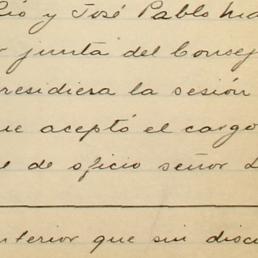 Río y José Pablo Ma
r junta del Consej
residiera la sesión
ue aceptó el cargo
e de oficio señor
nterior que sin disc